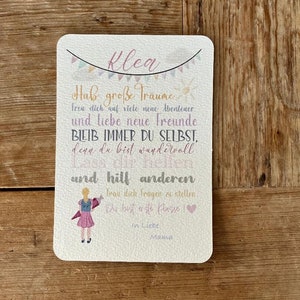 Klea
Hab große Träume
Freu dich auf viele neue Abenteuer
und liebe neue Freunde
BLEIB IMMER DU SELBST,
denn du bist wundervoll
Lass dir helfen
und hilf anderen
Trau dich Fragen zu stellen
Du bist erste Klasse!
In Liebe
Mama